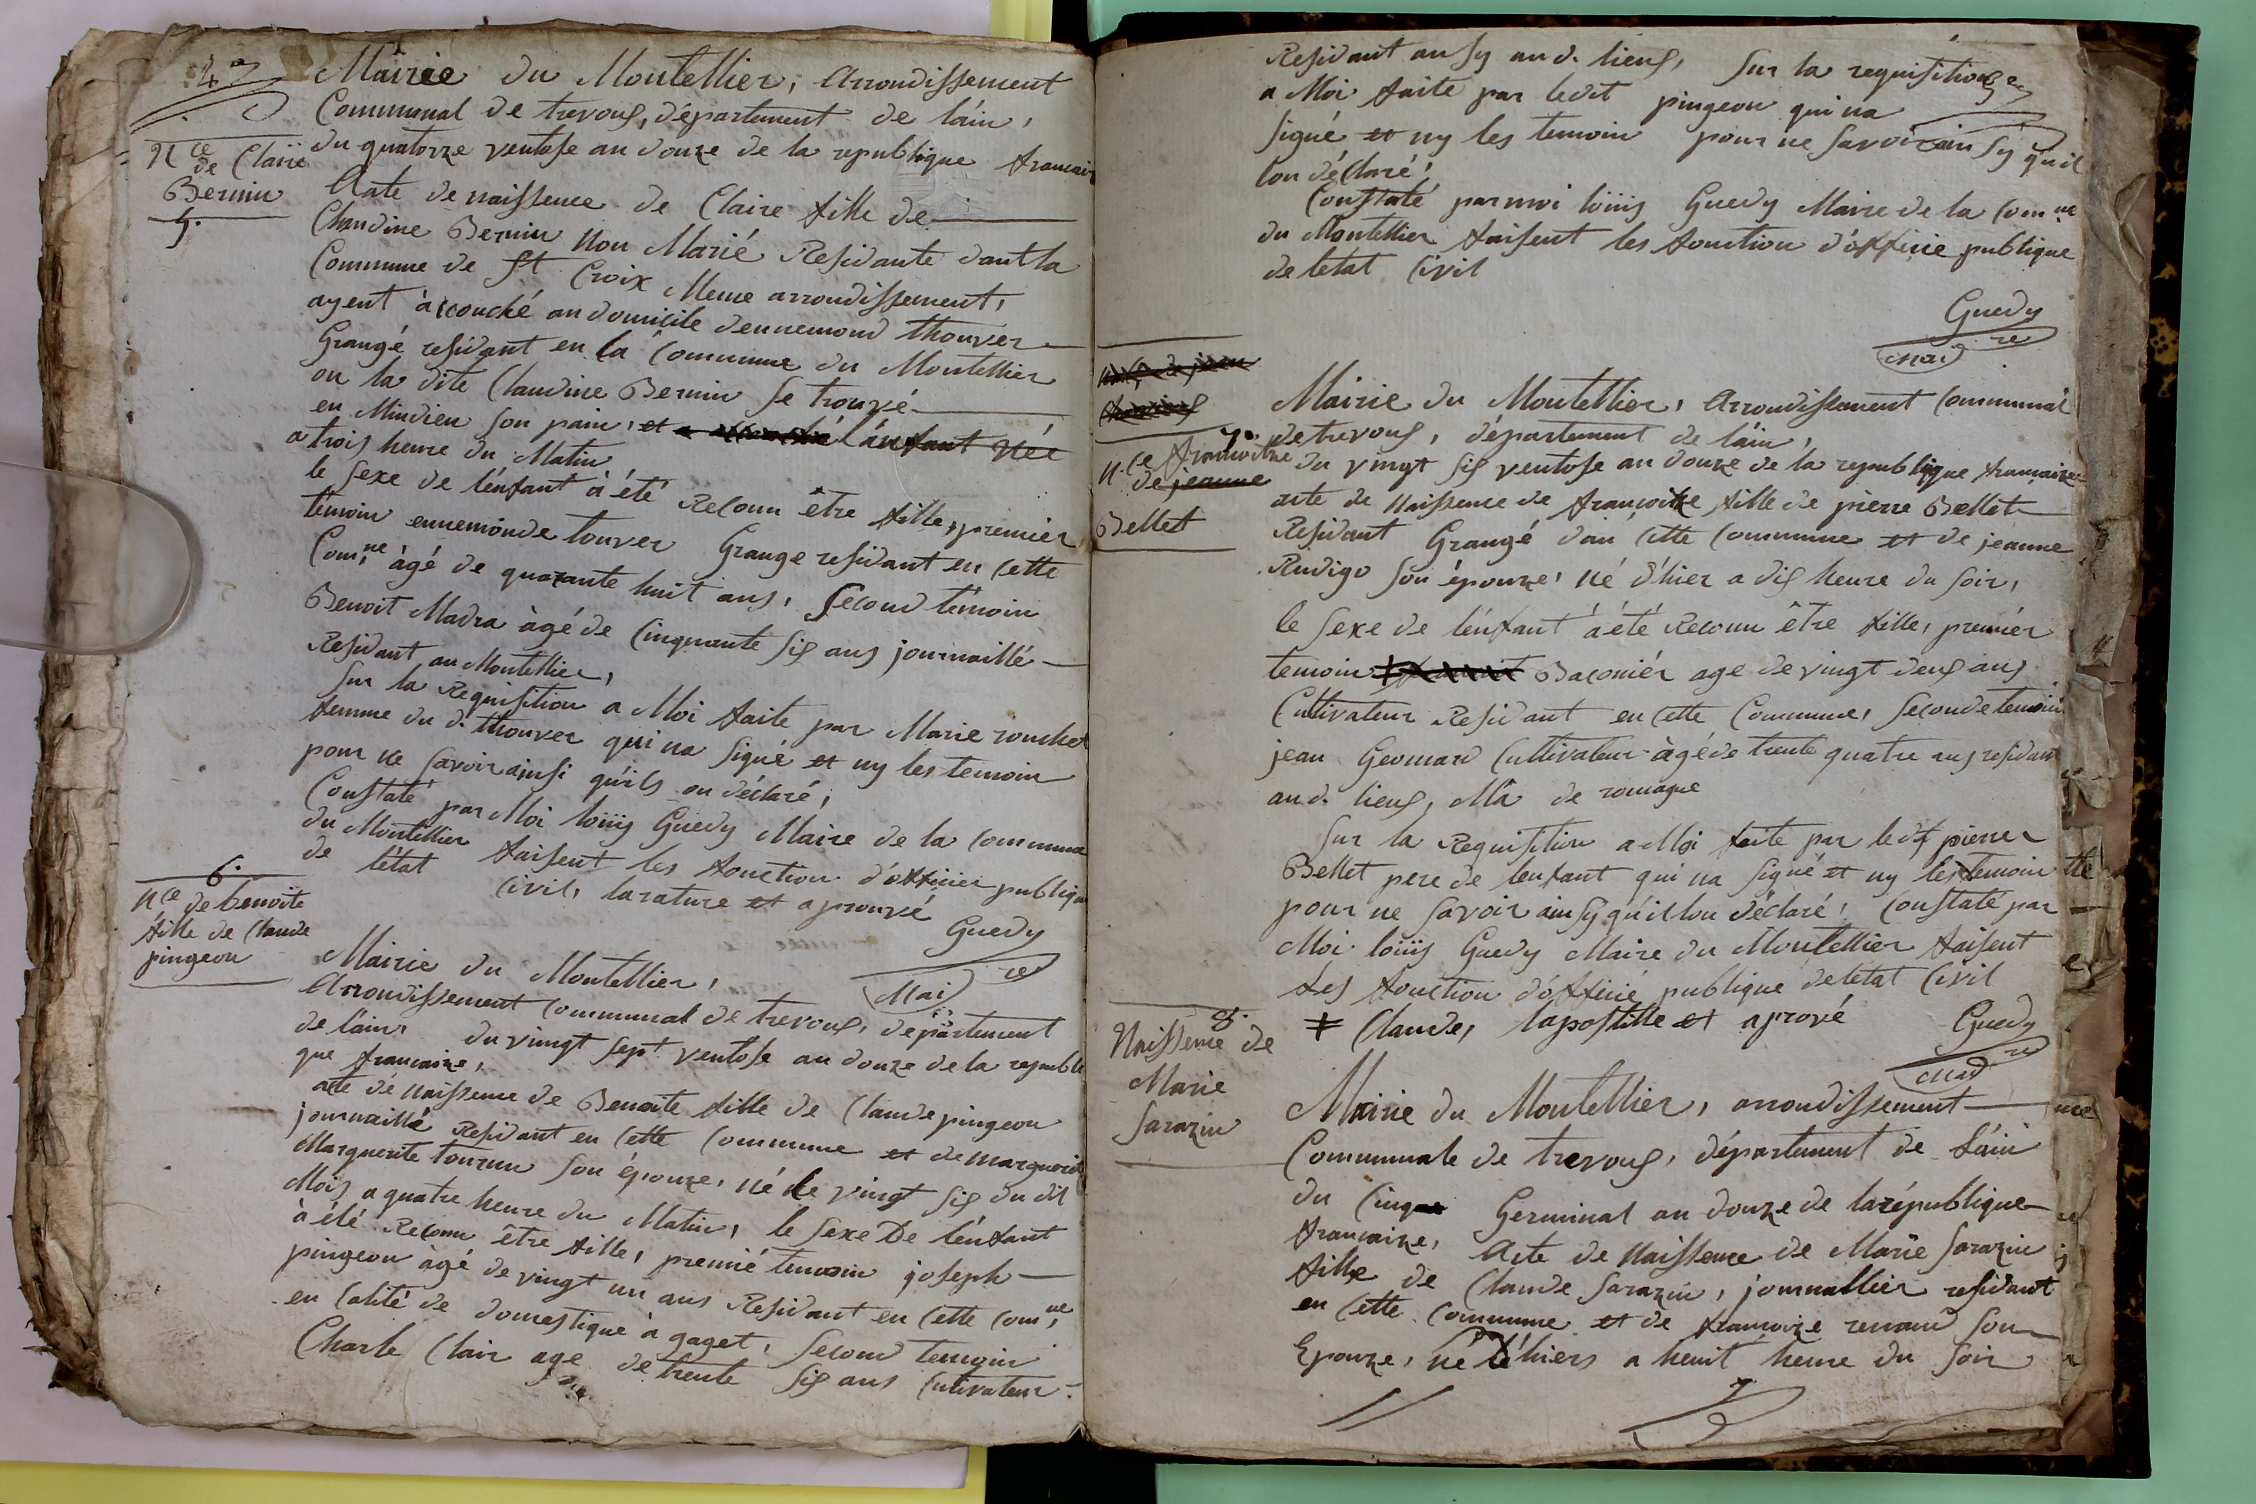 4e
Mairie du Montellier, Arrondissement
Communal de trevous, département de l'áin,
du quatorze ventose an douze de la republique francais
Nce
de Claire
Bernin
5.
Acte de naissence de Claire fille de
Claudine Bernin Non Marié Residante dant la
Commune de St Croix Meme arrondissement,
ayent àccouché au domicile dennemond thouver
Grangé residant en la Commune du Montellier
ou la dite Claudine Bernin se trouvé
en Mindien son pain, et l'anfant Née
a trois heure du Matin
le sexe de l'énfant à été Reconu être fille, premier
témoin ennemonde touver Grange residant en cette
Comne àgé de quarante huit ans, second témoin
Benoit Madra àgé de Cinquante six ans journaillé
Residant au Montellier,
sur la Requisition a Moi faite par Marie rouchet
femme du d. thouver qui na signé et ny les temoin
pour ne savoir ainsi qu'ils on déclaré,
Constaté par Moi loüis Guedy Maire de la commune
du Montellier faisent les fonction d'officier publique
de l'état Civil, la rature et aprouvé
Guedy
Maire
6.
Nce de benoite
fille de Claude
pingeon
Mairie du Montellier,
Arrondissement Communal de trevous, département
de l'áin, du vingt sept ventose an douze de la republi
que francaise,
acte de Naissence de Benoite fille de Claude pingeon
journaillé Residant en cette Commune et de marguerite
Marguerite tournu son épouze, né le vingt six du dit
Mois a quatre heure du Matin, le sexe De l'énfant
à été Reconu être fille, premié temoin joseph
pingeon àgé de vingt un ans Residant en cette Comne
en calité de domestique à gaget, second temoin
Charle Clair age de trente six ans Cultivateur
Residant ausy au d. lieus, sur la requisition
a Moi faite par ledit pingeon qui na
signé et ny les temoin pour ne savoir ainsy qu'il
lon déclaré,
Constaté par moi loüis Guedy Maire de la Comne
du Montellier faisent les fonction d'officie publique
de letat Civil
Guedy
Maire
7.
Nce francoise
de jeanne
Bellet
Mairie du Montellier, Arrondissement Communal
de trevous, département de láin,
du vingt six ventose an douze de la republique francaize
acte de Naissence de francoize fille de pierre Bellet
Residant Grangé dan cette Commune et de jeanne
Rudigo son épouze, né d'hier a dix heure du soir,
le sexe de l'énfant à été Reconu être fille, premiér
temoin ‡ Baconiér age de vingt deux ans
Cultivateur Residant en cette Commune, seconde temoin
jean Geomard Cultivateur àgé de trente quatre ans residant
au d. lieus, Ma de romague
sur la Requisition a Moi faite par ledt pierre
Bellet pere de lenfant qui na signé et ny les temoin
pour ne savoir ainsy qu'il lon déclaré, Constaté par
Moi loüis Guedy Maire du Montellier faisent
Les fonction d'officié publique de letat Civil
‡ Claude, lapostille et aprové
Guedy
Maire
8.
Naissence de
Marie
Sarazin
Mairie du Montellier, arrondissement
Communale de trevous, département de Láin
du Cinq Germinal an douze de la république
francaize, Acte de Naissence de Marie Sarazin
fille de Claude Sarazin, journallier residant
en cette Commune et de francoize renaud son
Epouze, né d'hiers a heuit heure du soir